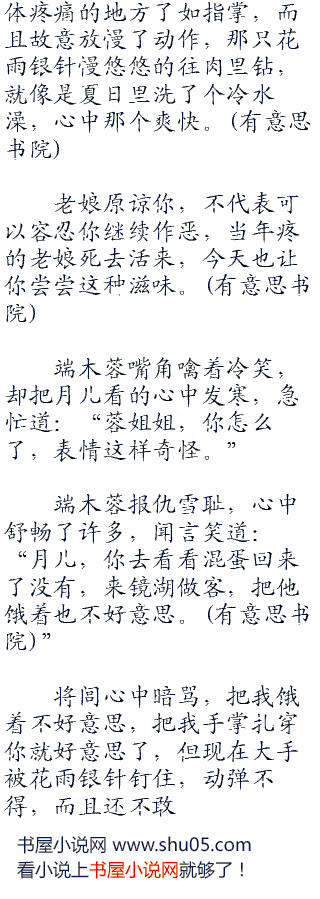 体疼痛的地方了如指掌，而
且故意放慢了动作，那只花
雨银针慢悠悠的往肉里钻，
就像是夏日里洗了个冷水
澡，心中那个爽快。(有意思
书院)
老娘原谅你，不代表可
以容忍你继续作恶，当年疼
的老娘死去活来，今天也让
你尝尝这种滋味。(有意思书
院)
端木蓉嘴角噙着冷笑，
却把月儿看的心中发寒，急
忙道：“蓉姐姐，你怎么
了，表情这样奇怪。”
端木蓉报仇雪耻，心中
舒畅了许多，闻言笑道：
“月儿，你去看看混蛋回来
了没有，来镜湖做客，把他
饿着也不好意思。(有意思书
院)”
将闾心中暗骂，把我饿
着不好意思，把我手掌扎穿
你就好意思了，但现在大手
被花雨银针钉住，动弹不
得，而且还不敢
书屋小说网 www.shu05.com
看小说上书屋小说网就够了！